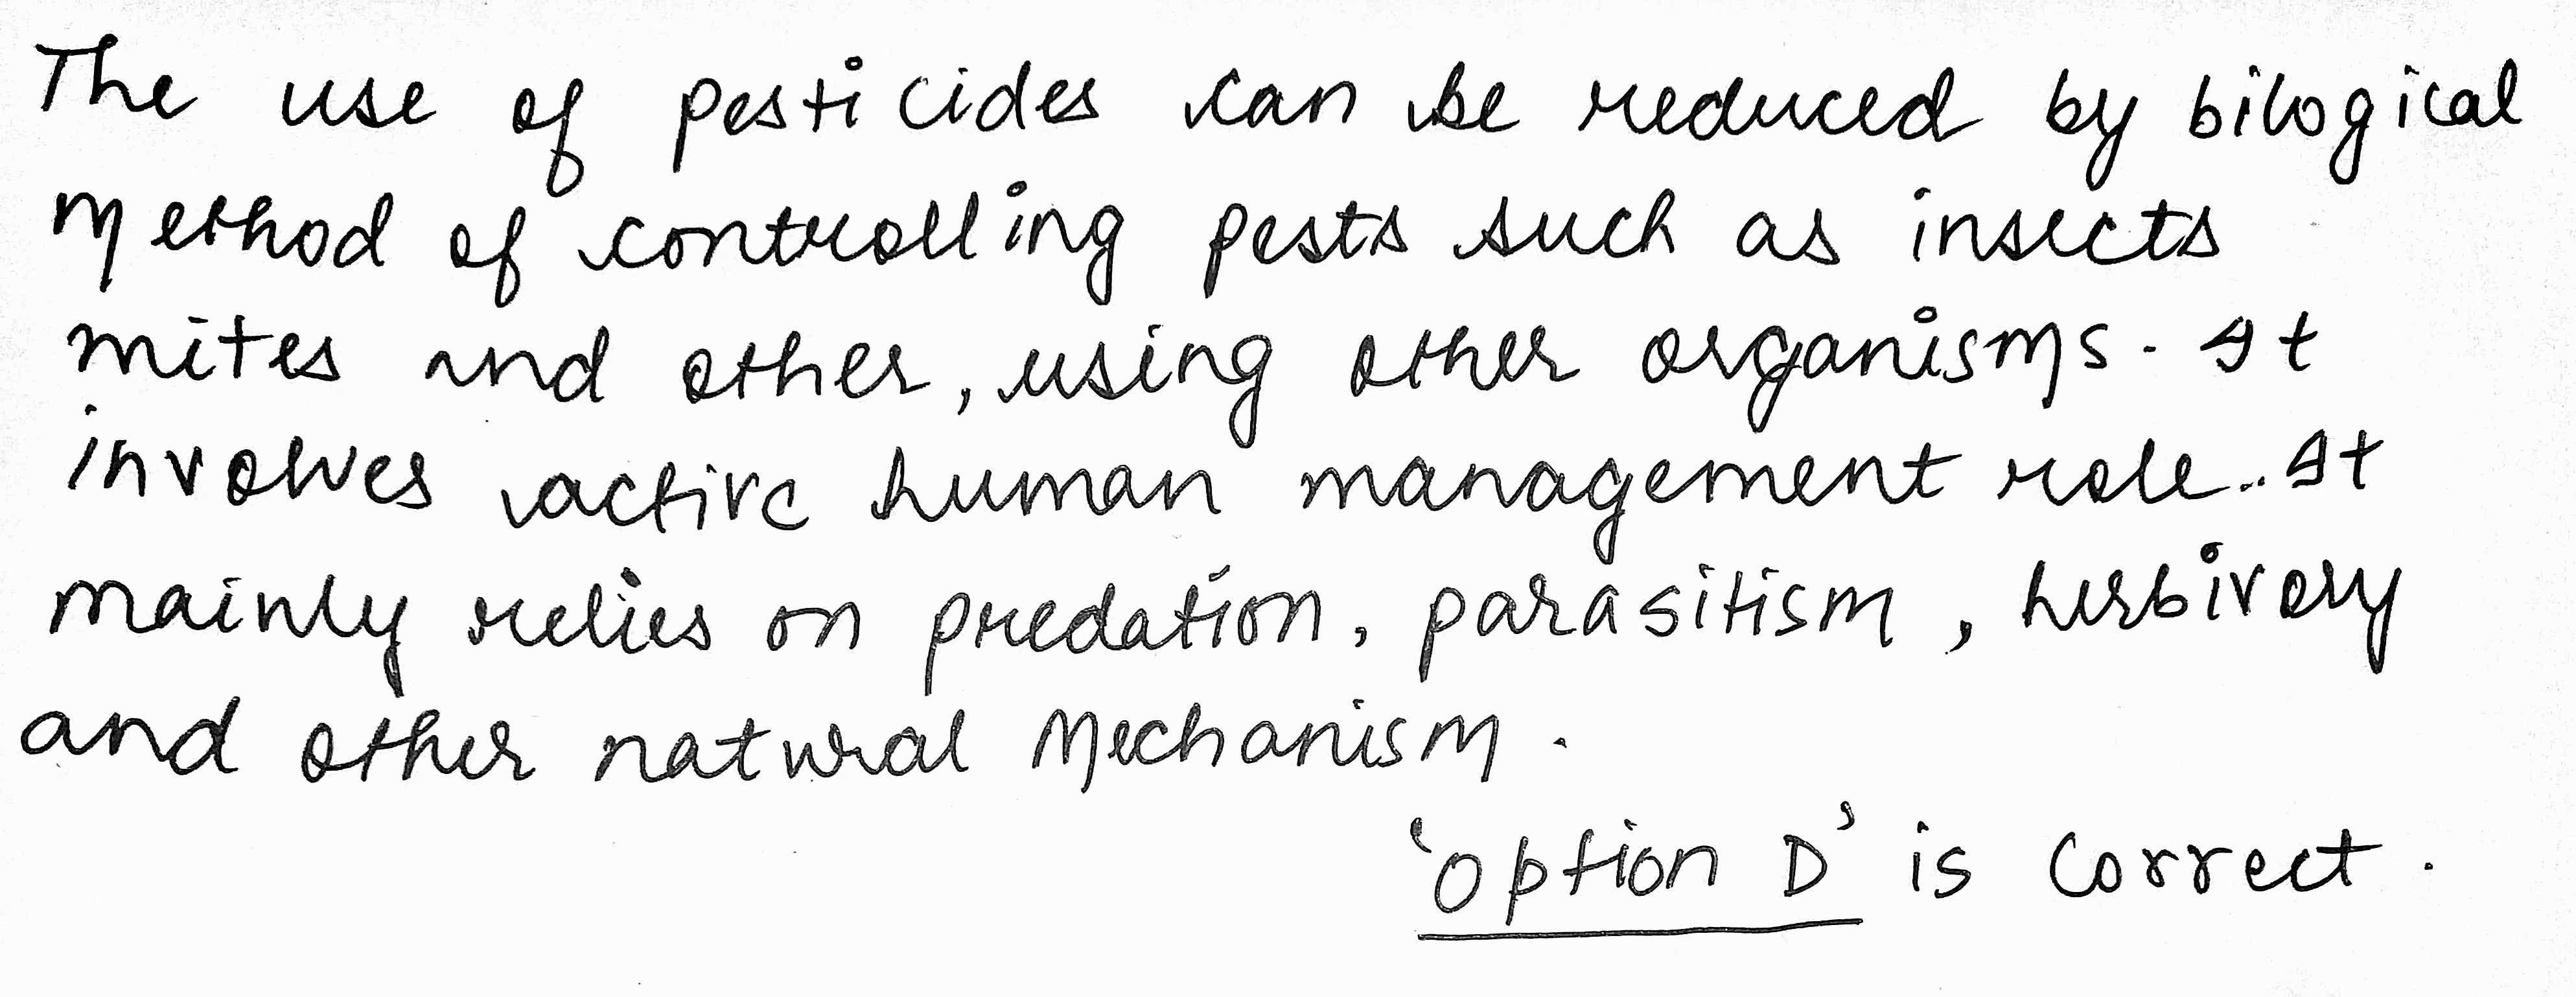 The use of pesticides can be reduced by bilogical
Method of controlling pests such as insects
mites and other, using other organisms. It
involves active human management role.. It
mainly relies on predation, parasitism, herbivory
and other natural Mechanism.
'Option D' is Correct.